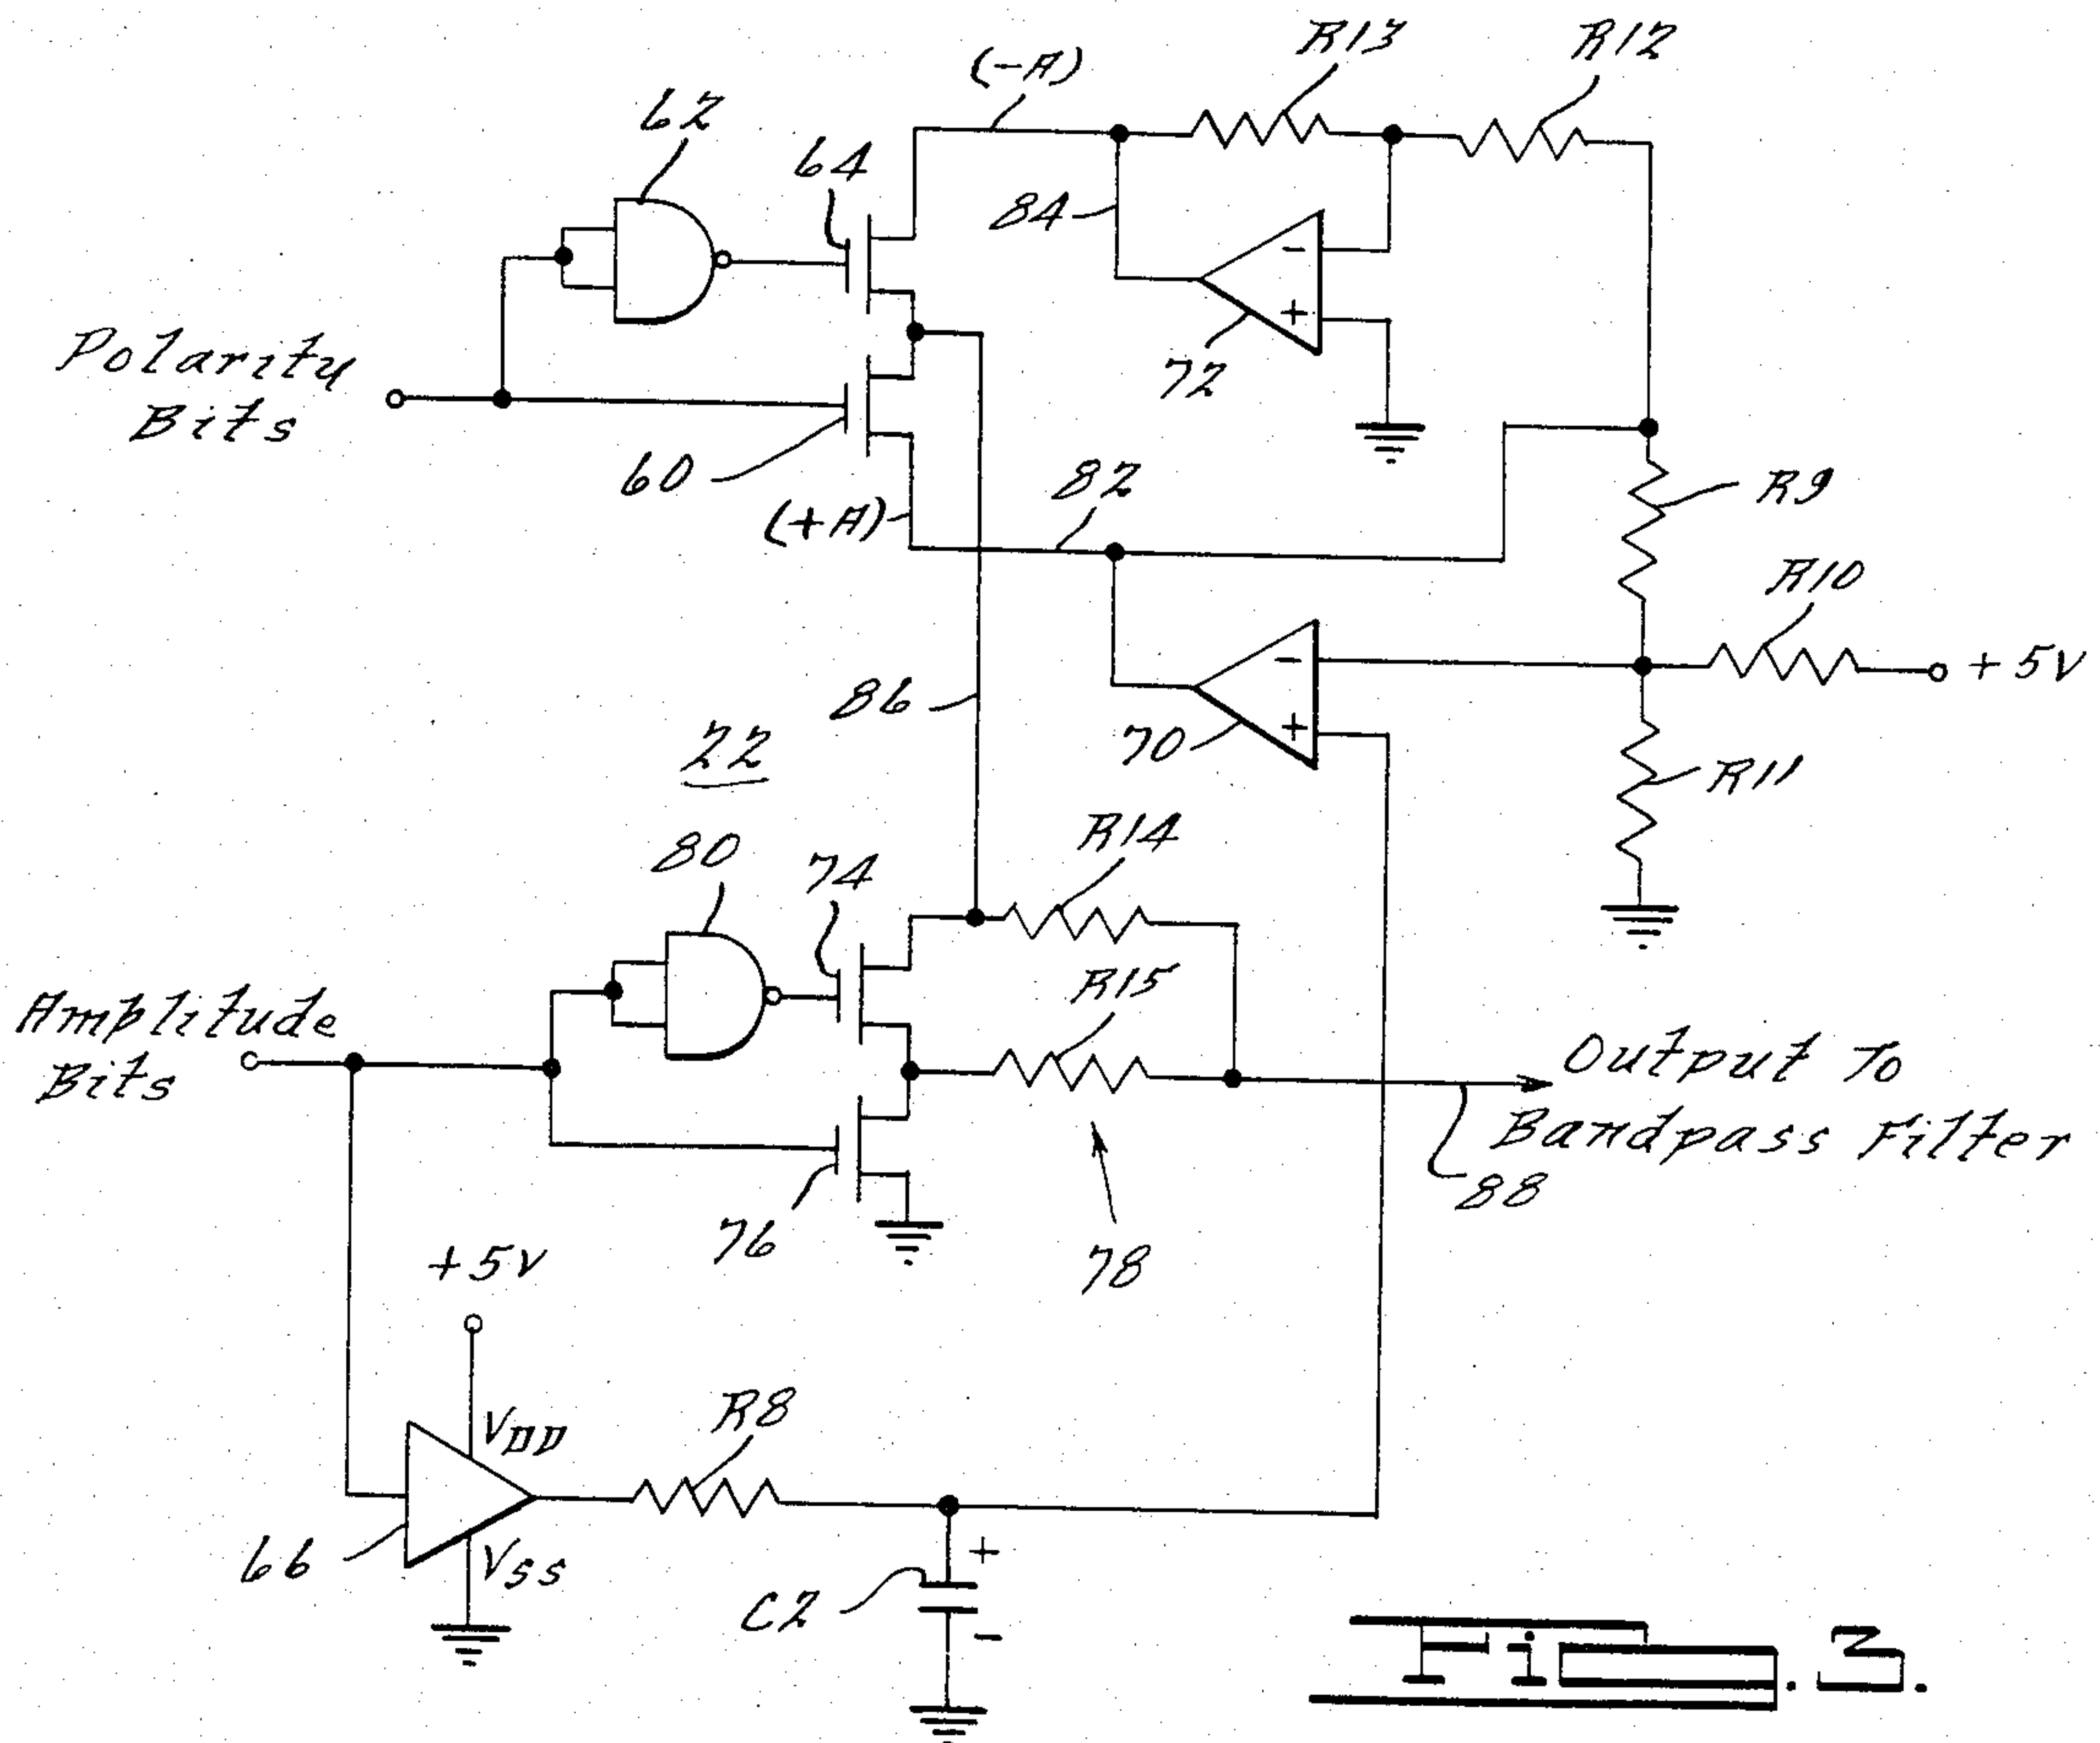 R13
R12
(-A)
62
64
84
Polarity
Bits
-
+
72
60
82
(+A)
R9
R10
+5V
86
-
+
70
22
R11
R14
80
74
R15
Amplitude
Bits
Output To
Bandpass Filter
88
76
78
+5V
VDD
R8
66
VSS
+
C2
-
Fig. 3.